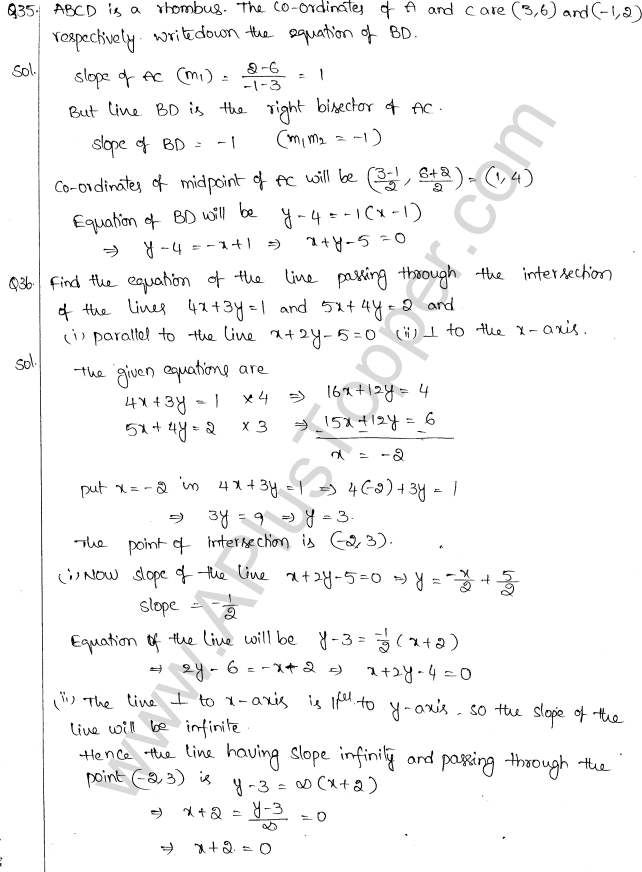 Q35. ABCD is a rhombus. The co-ordinates of A and C are (3,6) and (-1,2)
respectively. write down the equation of BD.
Sol. slope of AC (m₁) = \frac{2-6}{-1-3} = 1
But line BD is the right bisector of AC.
slope of BD = -1 (m₁m₂ = -1)
Co-ordinates of midpoint of AC will be (\frac{3-1}{2}, \frac{6+2}{2}) = (1,4)
Equation of BD will be y-4 = -1(x-1)
⇒ y-4 = -x+1 ⇒ x+y-5 = 0
Q36. Find the equation of the line passing through the intersection
of the lines 4x+3y=1 and 5x+4y=2 and
(i) parallel to the line x+2y-5=0 (ii) ⊥ to the x-axis.
Sol. The given equations are
4x+3y = 1 ×4 ⇒ 16x+12y = 4
5x+4y = 2 ×3 ⇒ 15x+12y = 6
- - -
x = -2
put x=-2 in 4x+3y=1 ⇒ 4(-2)+3y = 1
⇒ 3y = 9 ⇒ y = 3.
The point of intersection is (-2,3).
(i) Now slope of the line x+2y-5=0 ⇒ y = \frac{-x}{2} + \frac{5}{2}
slope = -\frac{1}{2}
Equation of the line will be y-3 = \frac{-1}{2}(x+2)
⇒ 2y-6 = -x+2 ⇒ x+2y-4=0
(ii) The line ⊥ to x-axis is ||lel to y-axis. so the slope of the
line will be infinite.
Hence the line having slope infinity and passing through the
point (-2,3) is y-3 = ∞(x+2)
⇒ x+2 = \frac{y-3}{∞} = 0
⇒ x+2 = 0
www.APlusTopper.com